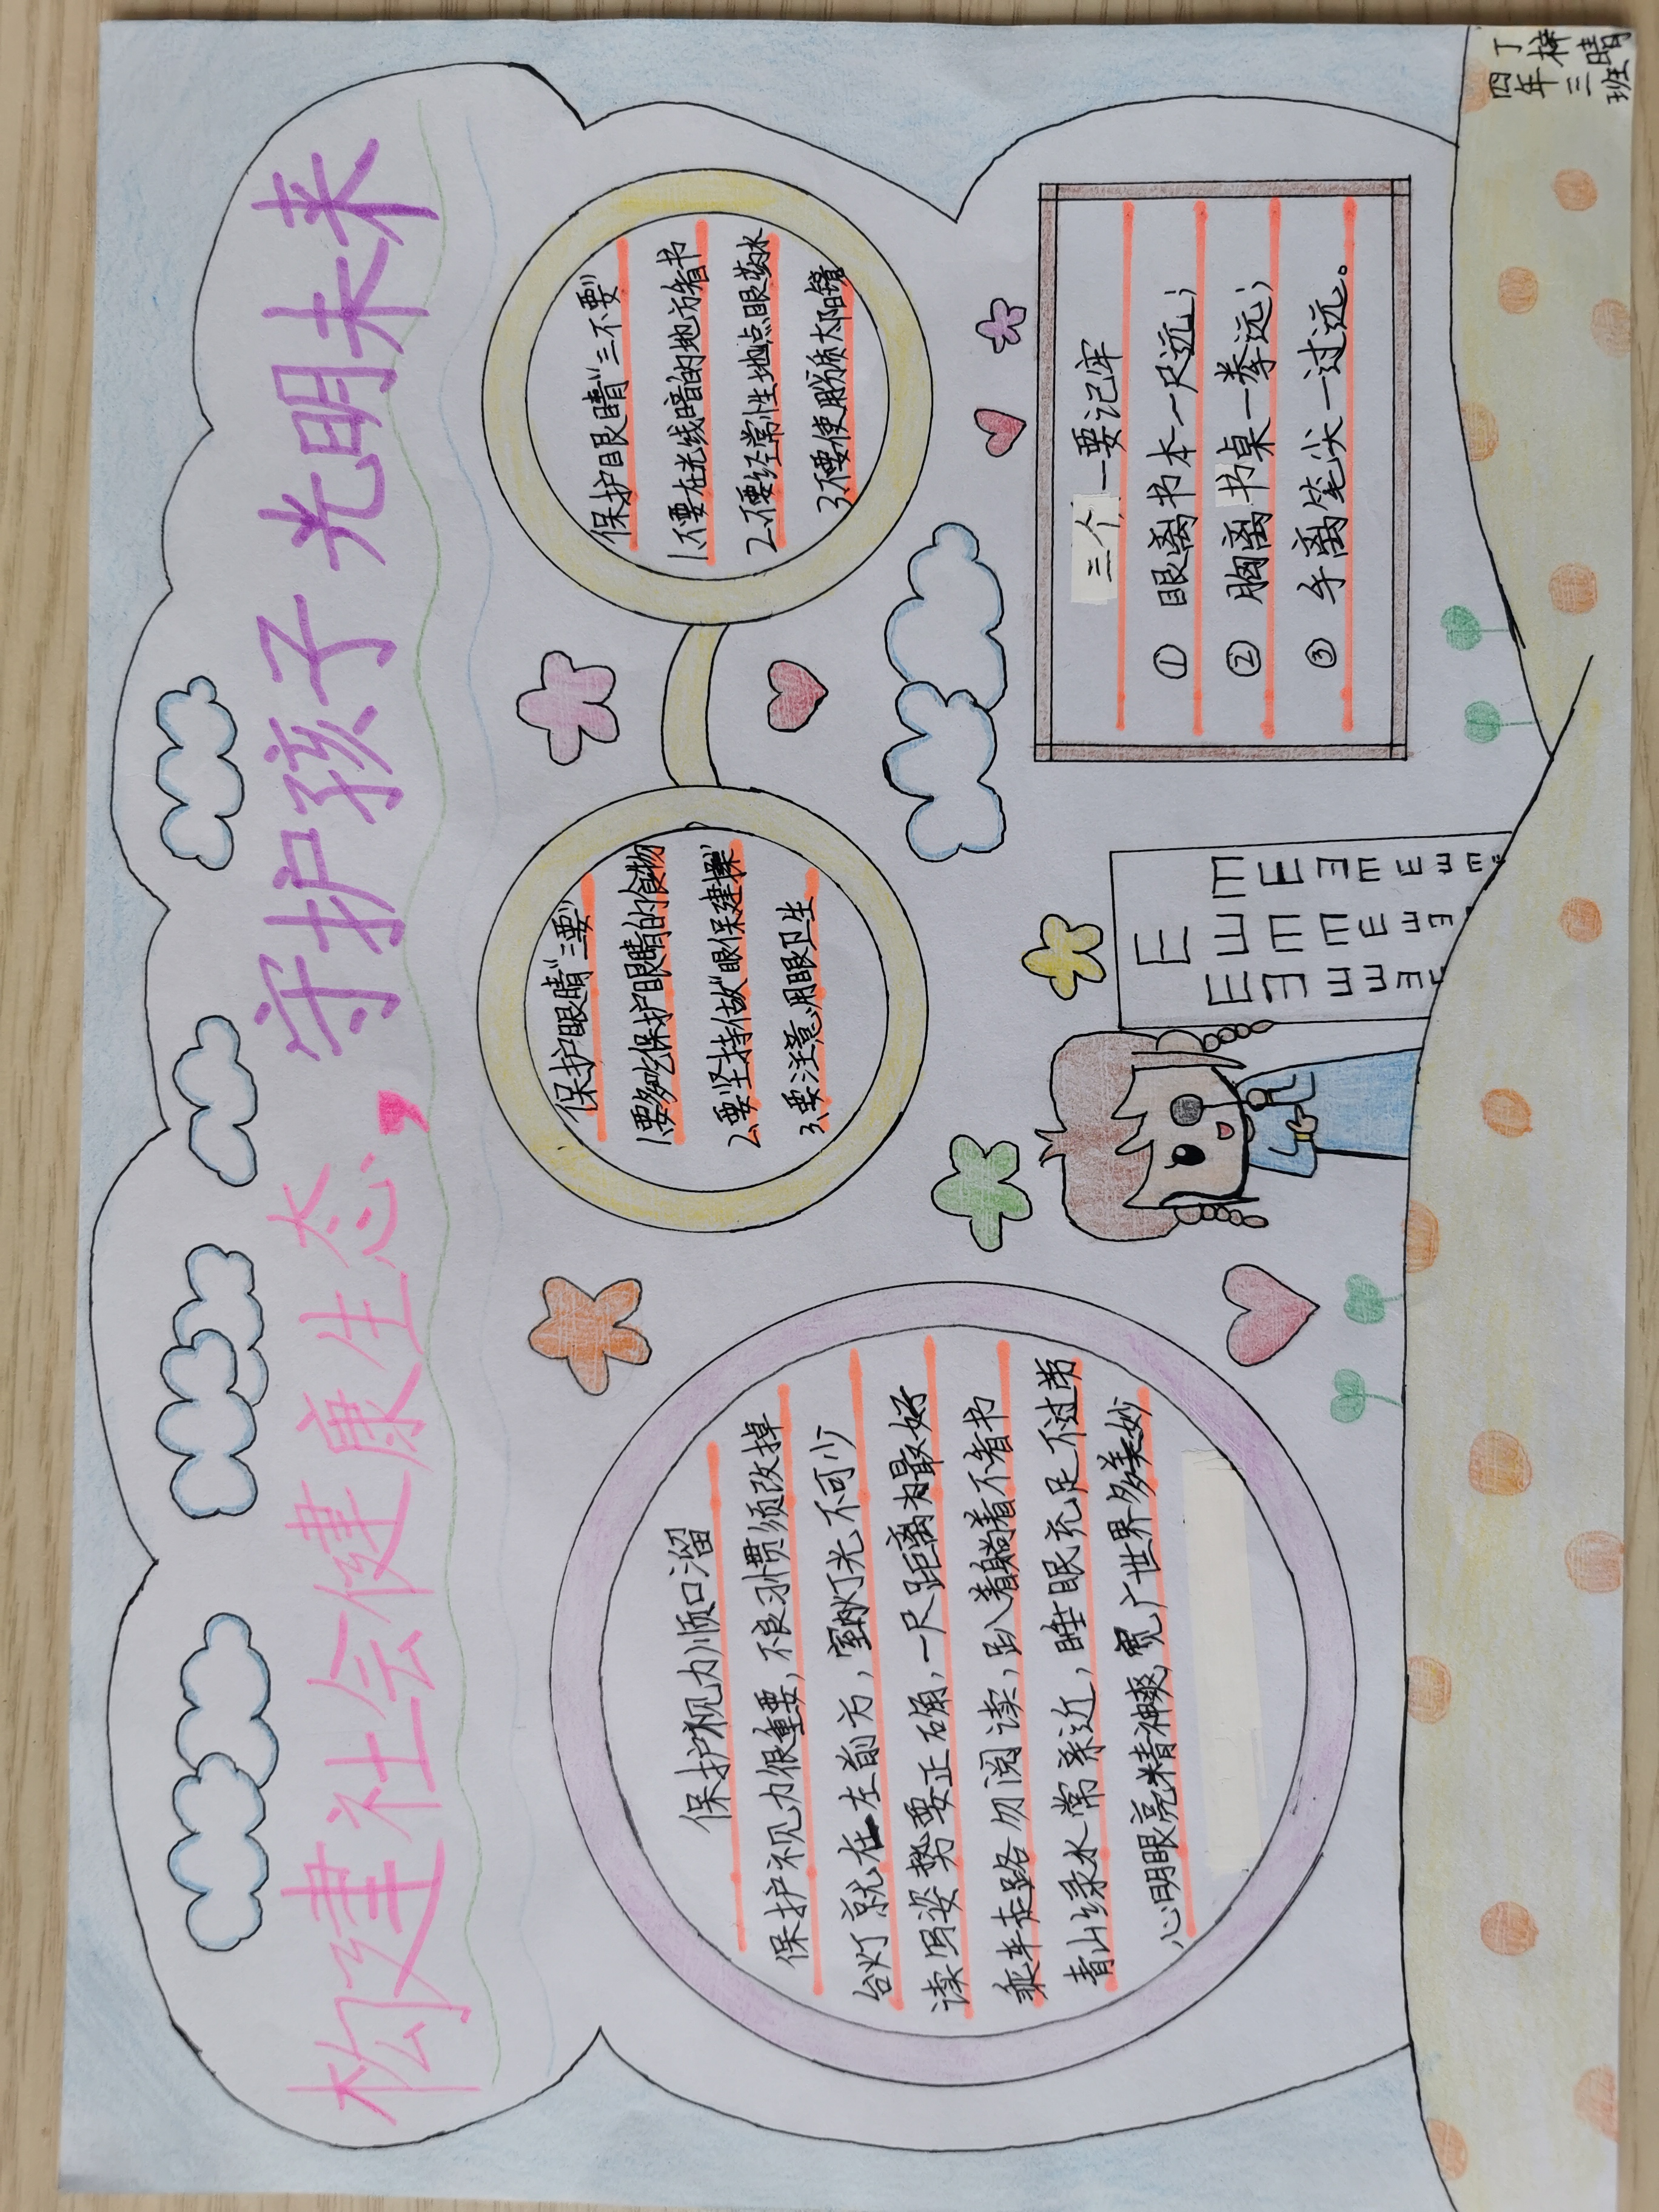 构建社会健康生态，守护孩子光明未来
保护视力顺口溜
保护视力很重要，不良习惯须改掉
台灯就在左前方，室内灯光不可少
读写姿势要正确，一尺距离为最好
乘车走路勿阅读，趴着躺着不看书
青山绿水常亲近，睡眠充足不过劳
心明眼亮精神爽，宽广世界多美妙
保护眼睛“三要”
1.要多吃保护眼睛的食物
2.要坚持做“眼保健操”
3.要注意用眼卫生
保护眼睛“三不要”
1.不要在光线暗的地方看书
2.不要经常性地点眼药水
3.不要使用劣质太阳镜
三个一要记牢
① 眼离书本一尺远；
② 胸离书桌一拳远；
③ 手离笔尖一过远。
E
E E E
E E E
E E E
E E E
E E E
丁梓晴
四年三班